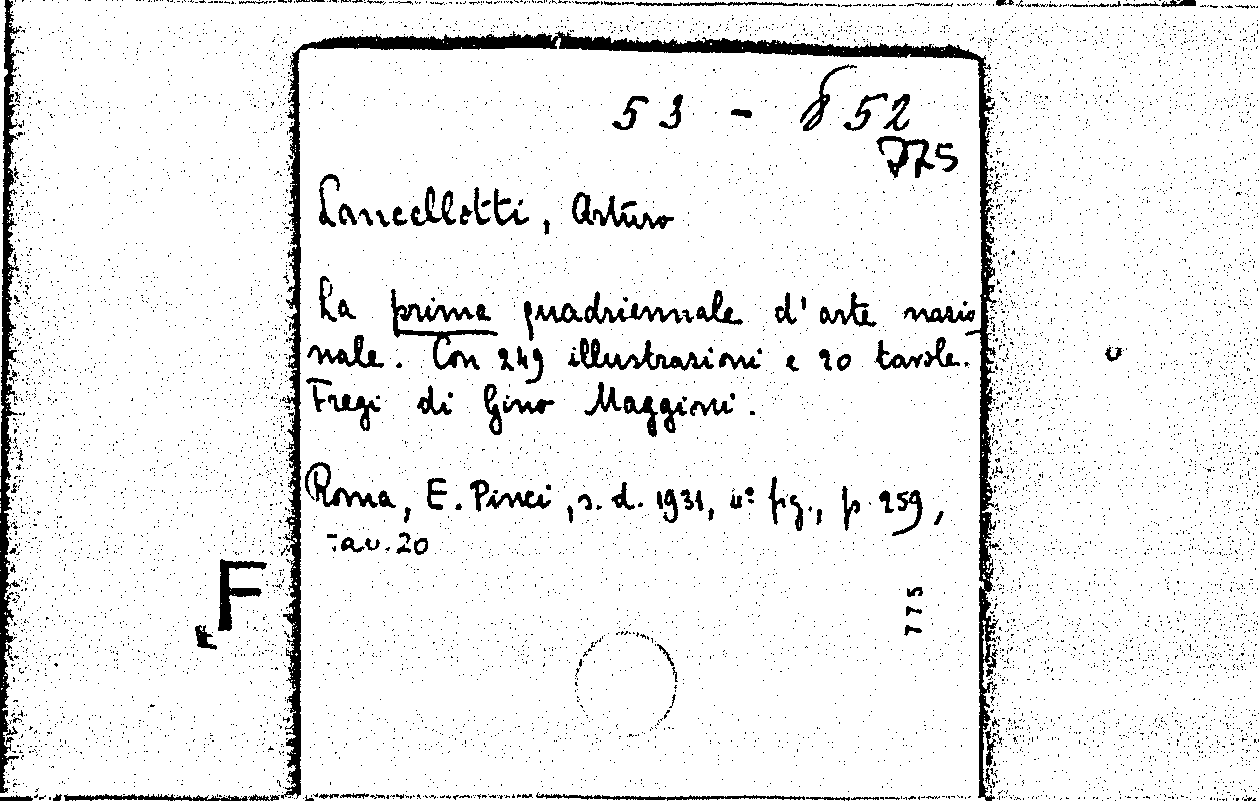 53 - 852
775
Lancellotti, Arturo
La prima quadriennale d'arte nazio
nale. Con 249 illustrazioni e 20 tavole.
Fregi di Gino Maggioni.
Roma, E. Pinci, s. d. 1931, 4º fig., p. 259,
tav. 20
F
F
775